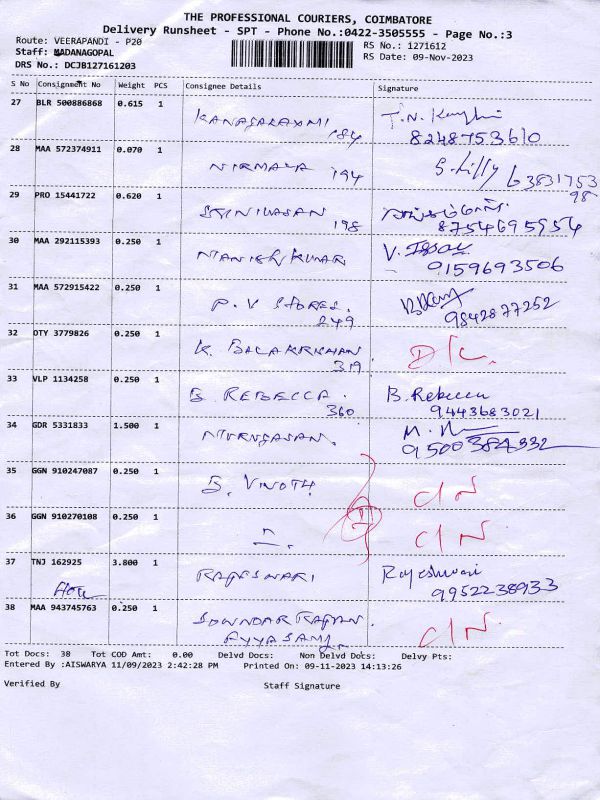 THE PROFESSIONAL COURIERS, COIMBATORE
Delivery Runsheet - SPT - Phone No.:0422-3505555 - Page No.:3
Route: VEERAPANDI - P20
RS No.: 1271612
Staff: MADANAGOPAL
RS Date: 09-Nov-2023
DRS No.: DCJB127161203
S No Consignment No Weight PCS Consignee Details Signature
27 BLR 500886868 0.615 1 KANAGALAXMI 184 T.N. 8248753610
28 MAA 572374911 0.070 1 NIRMALA 194 S. Lilly 6383175398
29 PRO 15441722 0.620 1 SRINIVASAN 198 8754695954
30 MAA 292115393 0.250 1 MANISH KUMAR V. 9159693506
31 MAA 572915422 0.250 1 P. V STORES. 249 9842877252
32 OTY 3779826 0.250 1 K. BALAKRISHNAN 319 D/L.
33 VLP 1134258 0.250 1 B. REBECCA. 360 B. Rebecca 9443683021
34 GDR 5331833 1.500 1 MURUGASAN. M. 9500384332
35 GGN 910247087 0.250 1 B. VINOTH C/N
36 GGN 910270108 0.250 1 " C/N
37 TNJ 162925 3.800 1 RAJESWARI Rajeshwari 9952238933
38 MAA 943745763 0.250 1 SOWNDAR RAJAN. C/N.
AYYASAMY
Tot Docs: 38 Tot COD Amt: 0.00 Delvd Docs: Non Delvd Docs: Delvy Pts:
Entered By :AISWARYA 11/09/2023 2:42:28 PM Printed On: 09-11-2023 14:13:26
Verified By Staff Signature